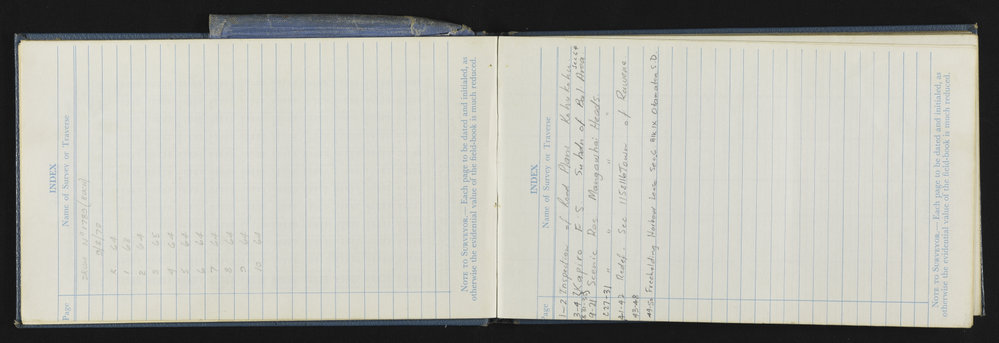 INDEX
Page Name of Survey or Traverse
9/2/70
R 64
1 63
2 64
3 65
4 64
5 64
6 64
7 64
8 64
9 64
10 64
NOTE TO SURVEYOR.—Each page to be dated and initialed, as
otherwise the evidential value of the field-book is much reduced.
INDEX
Page Name of Survey or Traverse
1-2 Inspection of Road Plans Kohukohu
3-4 Kapiro F S Subdn of Bal Area
Sec 64
9-21 Scenic Res Mangawhai Heads
27-31 " " "
41-42 Redef. Sec 115 & 116 Town of Rawene
43-48
49-50 Freeholding Harbour Lease Sec 6 Blk IX Omamatea S.D.
NOTE TO SURVEYOR.—Each page to be dated and initialed, as
otherwise the evidential value of the field-book is much reduced.